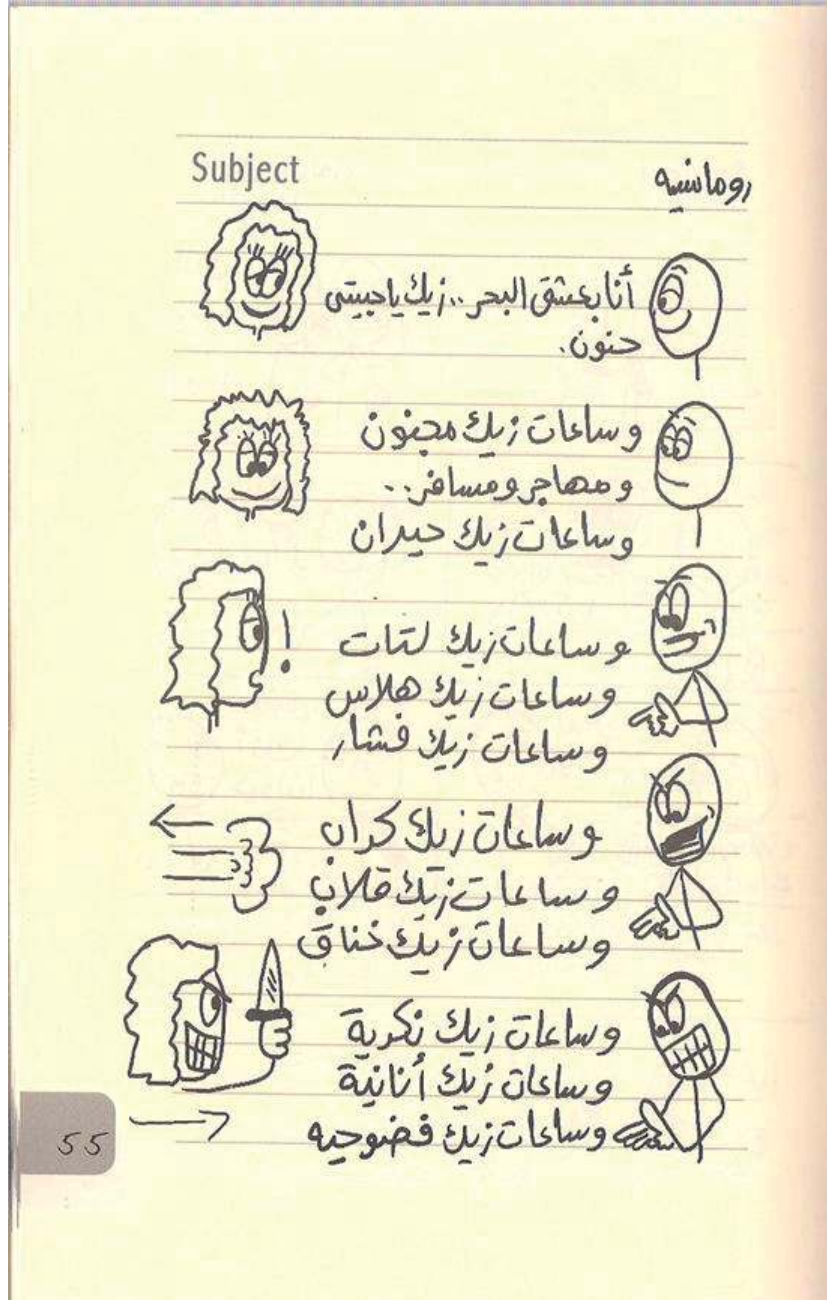 Subject
روماسيه
أنا بعشق البحر .. زيك يا حبيبتى
حنون.
وساعات زيك مجنون
ومهاجر ومسافر..
وساعات زيك حيران
!
وساعات زيك لتات
وساعات زيك هلاس
وساعات زيك فشار
وساعات زيك كداب
وساعات زيك قلاب
وساعات زيك خناق
وساعات زيك نكدية
وساعات زيك أنانية
وساعات زيك فضوحيه
55